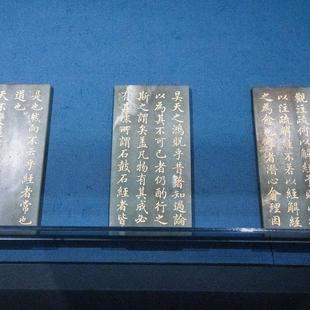 以注疏解經不若以經解經
之為愈也學者潛心會理因
昊天之鴻貺乎昔著知過論
以為其不可已者仍酌行之
斯之謂矣蓋凡物有其成必
有其壞所謂石鼓石經者皆
是也然而不云乎經者常也
道也
天不變道